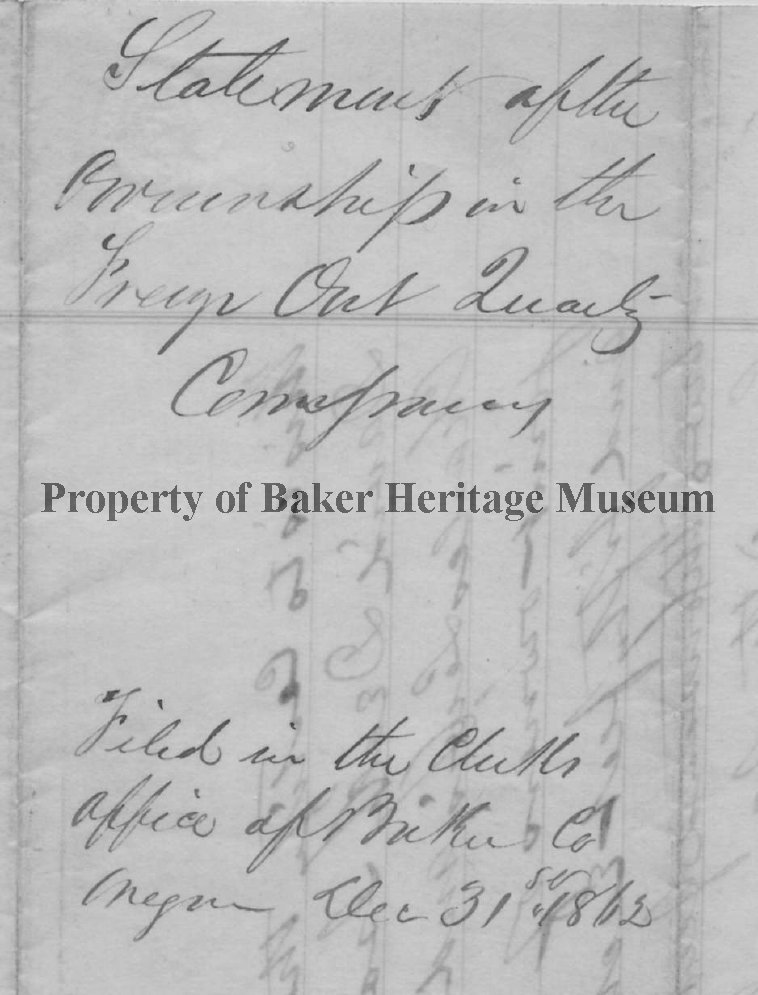 Statement of the
Ownership in the
Freeze Out Quartz
Company
Property of Baker Heritage Museum
Filed in the Clerks
office of Baker Co
Oregon Dec 31st 1862